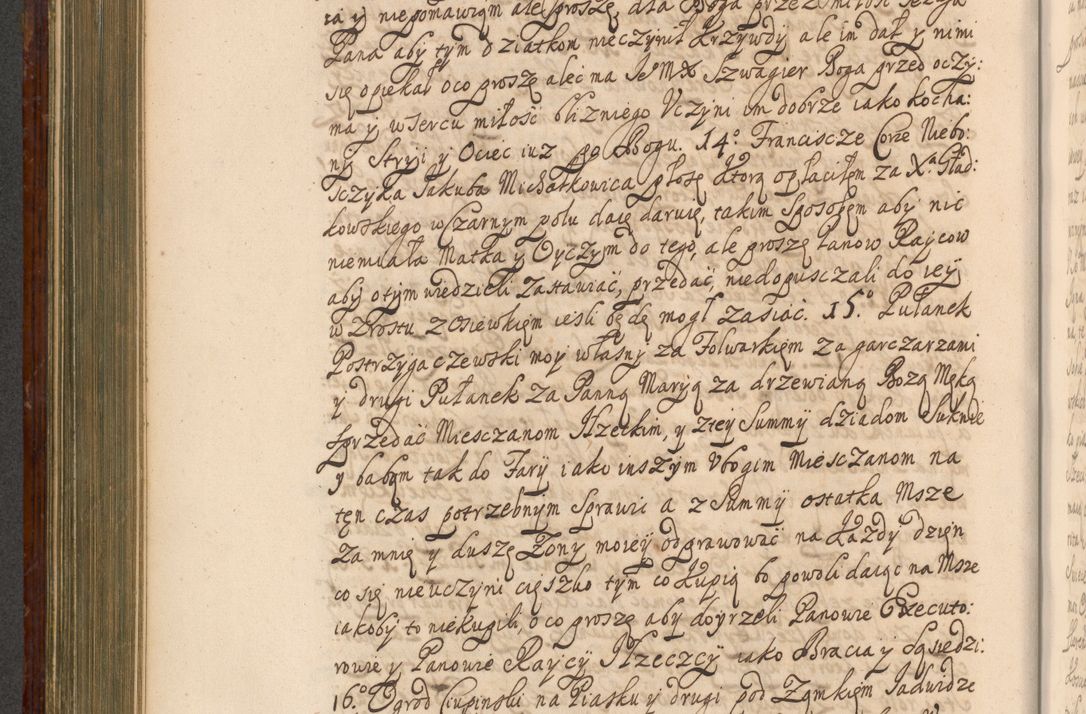 ta y niepomawiąm ale proszę dla Boga przez miłosć Jezusa
Pana aby tym dziatkom nieczynił krzywdy ale im dał y nimi
się opiekał oco proszę alec ma JeoMX Szwagier Boga przed oczy:
ma y w sercu miłosc blizniego Uczyni im dobrze iako kocha:
ny Stryi y Ociec iuz po Bogu. 14o Franciszce Corce Niebo:
sczyka Jakuba Michałkowica płosę ktorą opłaciłem za Xa Gład:
kowskiego w Czarnym polu daię daruię, takim sposobęm aby nic
niemiała Matka y Oyczym do tego, ale proszę Panow Raycow
aby otym wiedzieli Zastawiać, przedać, niedopusczali do ieÿ
wzrostu z osiewkiem iesli będę mogł zasiać. 15o Pułanek
Postrzygaczewski moy własny za Folwarkięm za garczarzami
y drugi Pułanek Za Panną Maryą za drzewianą Bozą Męką
sprzedać Miesczanom Jłzeckim, y zteÿ Summÿ dziadom Suknie
y babom tak do Farÿ iako inszym Vbogim Miesczanom na
tęn czas potrzebnym sprawic a z Summÿ ostatka Msze
Za mnię y duszę Zony moieÿ odprawować na każdy dzięn
co się nieuczyni cięszko tym co kupią bo powoli daiąc na Msze
iakoby to niekupili, o co proszę aby doyrzeli Panowie Executo:
rowie y Panowie Raycÿ Jłzeczcÿ iako Bracia y Sąsiedzi:
16o Ogrod Ciupinski na Piasku y drugi pod Zamkiem Jadwidze